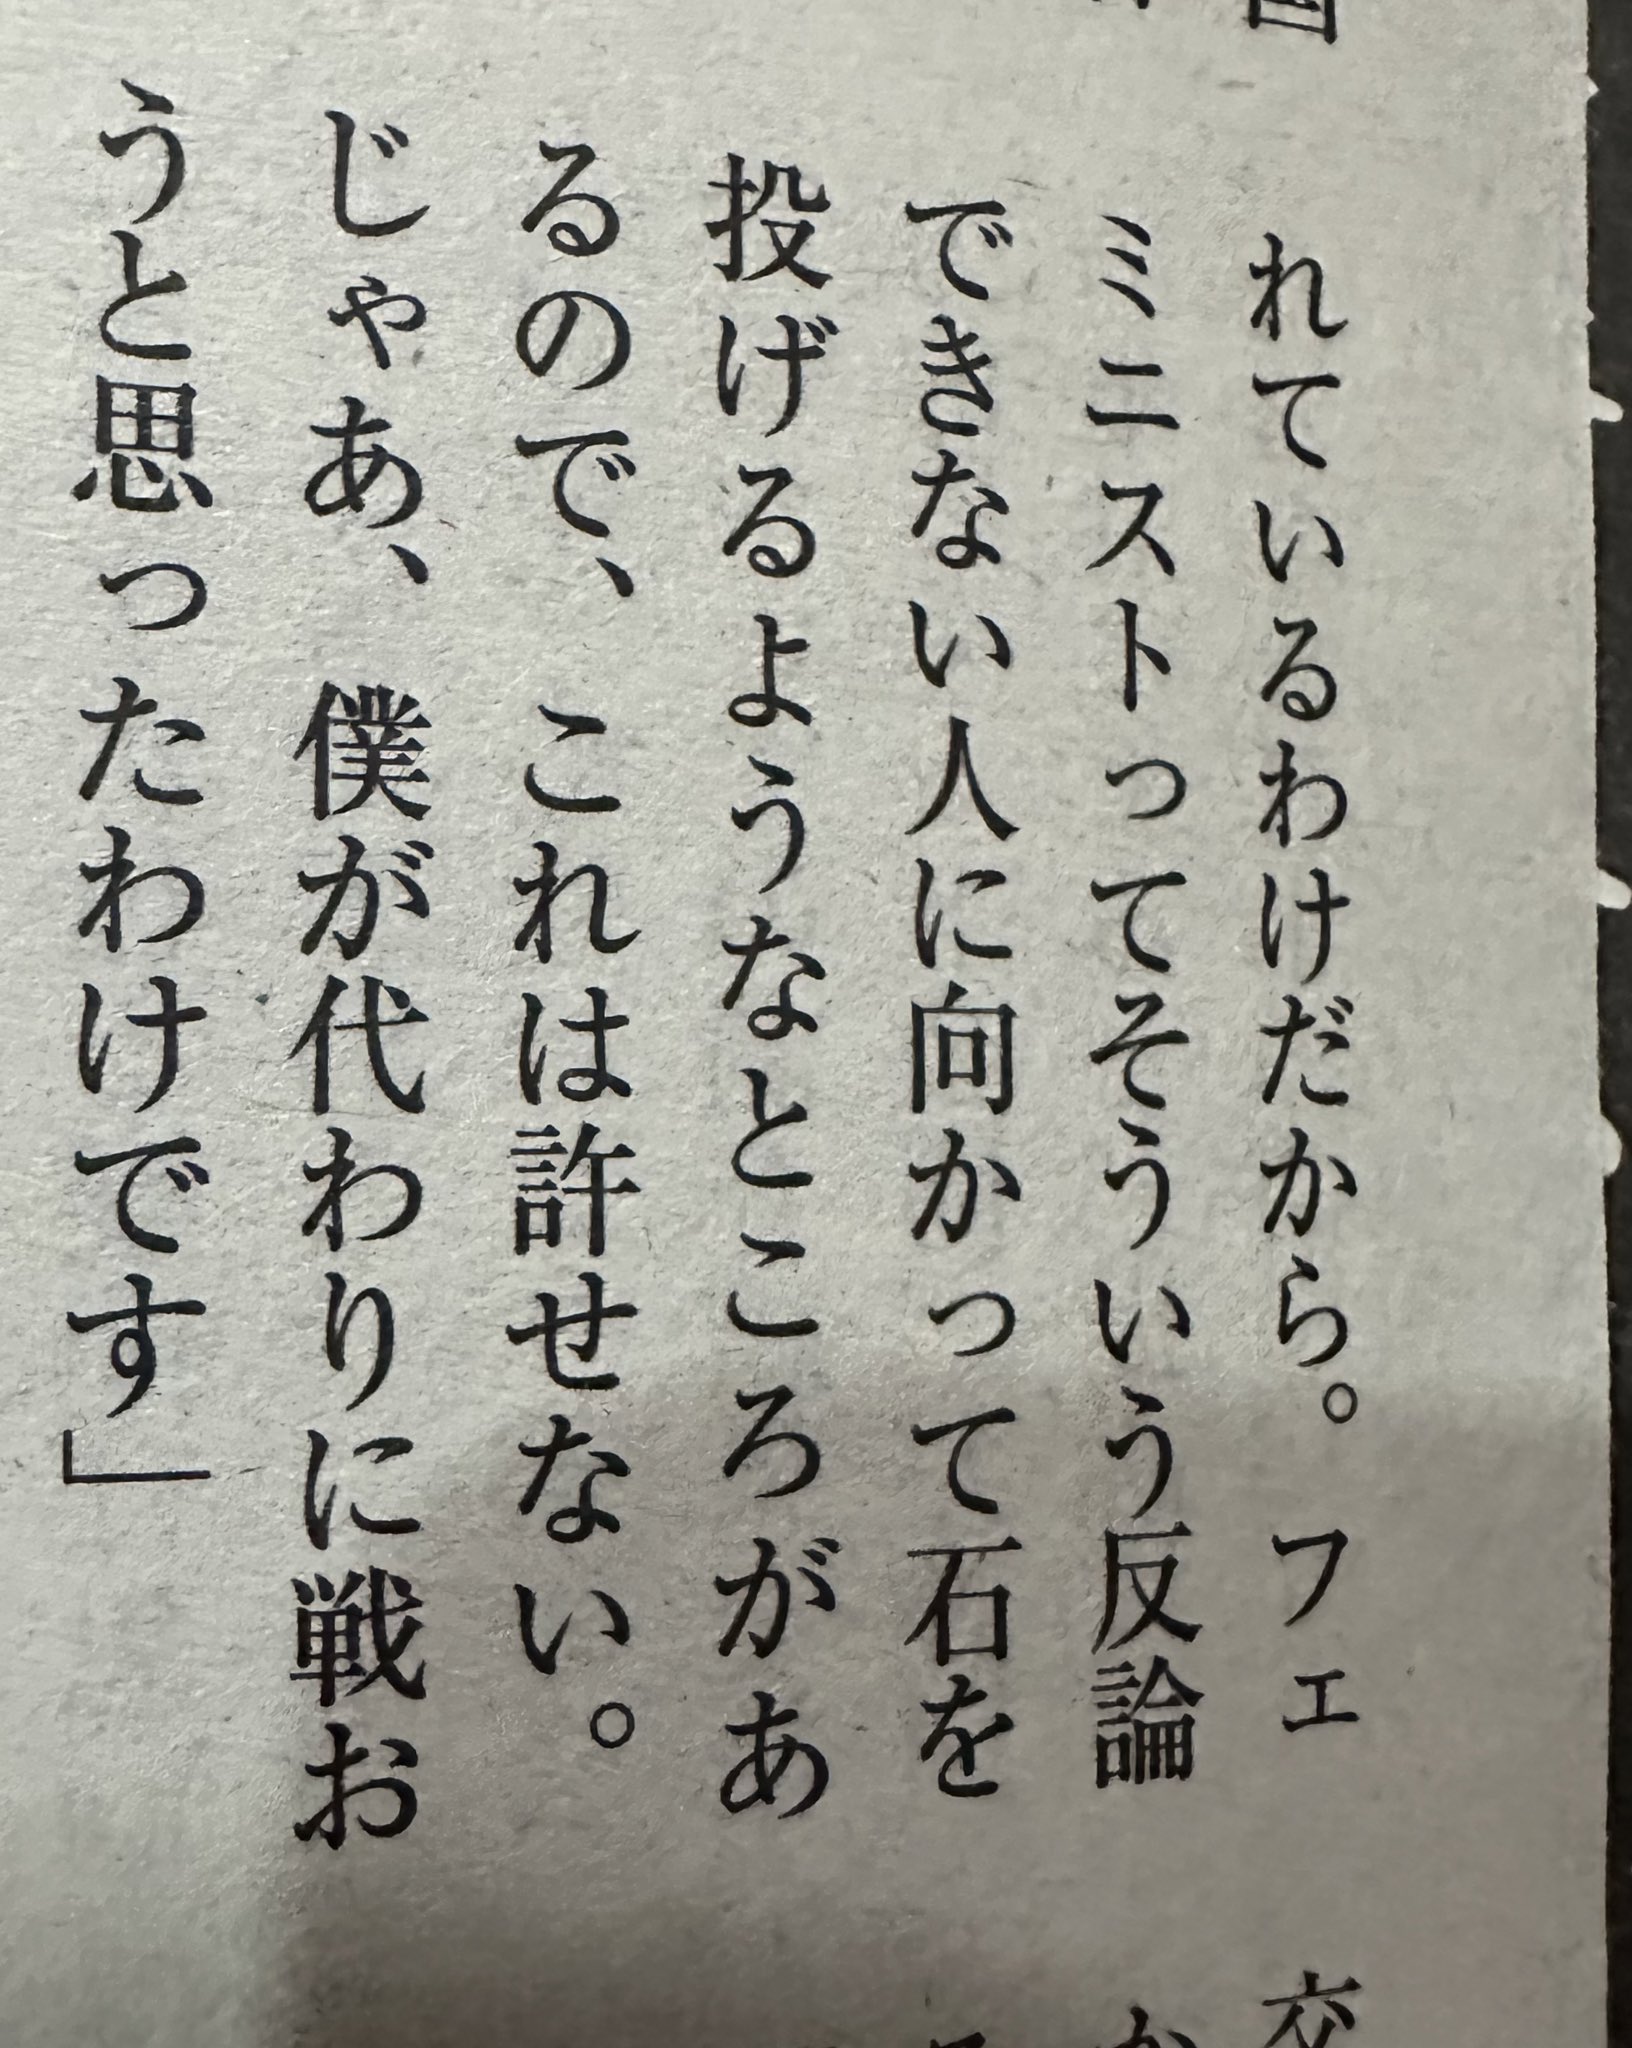 れているわけだから。フェ
ミニストってそういう反論
できない人に向かって石を
投げるようなところがあ
るので、これは許せない。
じゃあ、僕が代わりに戦お
うと思ったわけです」